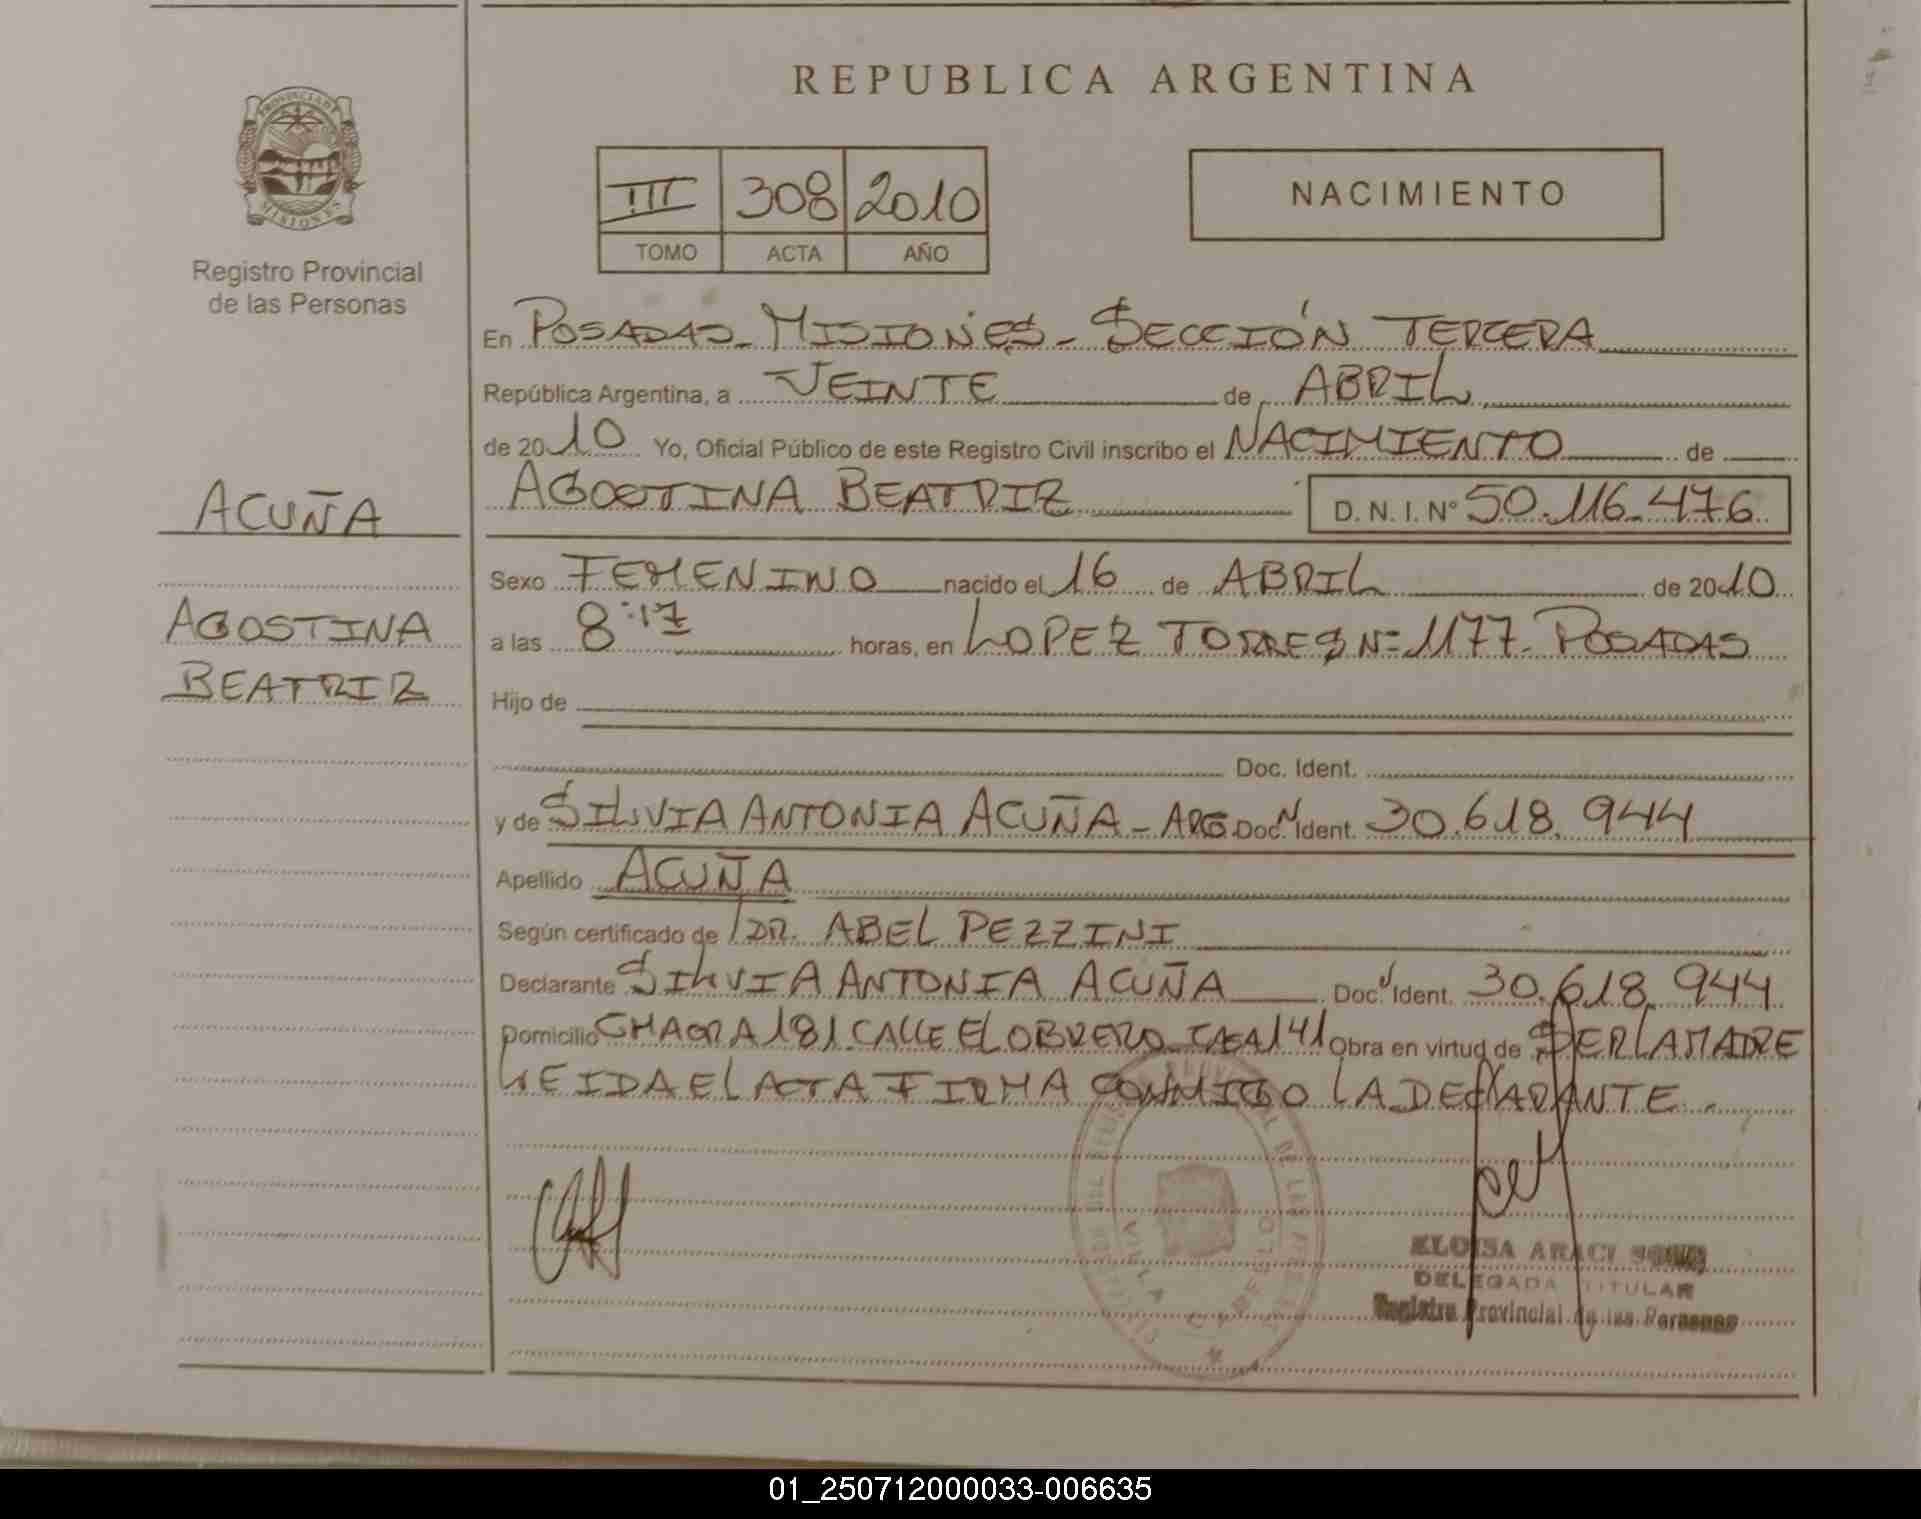 REPUBLICA ARGENTINA
PROVINCIA DE
MISIONES
Registro Provincial
de las Personas
III 308 2010
TOMO ACTA AÑO
NACIMIENTO
En POSADAS - MISIONES - SECCIÓN TERCERA
República Argentina, a VEINTE de ABRIL
de 2010 Yo, Oficial Público de este Registro Civil inscribo el NACIMIENTO de
AGOSTINA BEATRIZ D. N. I. N° 50.116.476
ACUÑA
AGOSTINA
BEATRIZ
Sexo FEMENINO nacido el 16 de ABRIL de 2010
a las 8:17 horas, en LOPEZ TORRES Nº 1177 - POSADAS
Hijo de
Doc. Ident.
y de SILVIA ANTONIA ACUÑA - ARG. Doc. Ident. 30.618.944
Apellido ACUÑA
Según certificado de DR. ABEL PEZZINI
Declarante SILVIA ANTONIA ACUÑA Doc. Ident. 30.618.944
Domicilio CHACRA 181 CALLE EL OBRERO CASA 141 Obra en virtud de SER LA MADRE
LEIDA EL ACTA FIRMA CONMIGO LA DECLARANTE.
ELOISA ARACI
DELEGADA TITULAR
Registro Provincial de las Personas
01_250712000033-006635